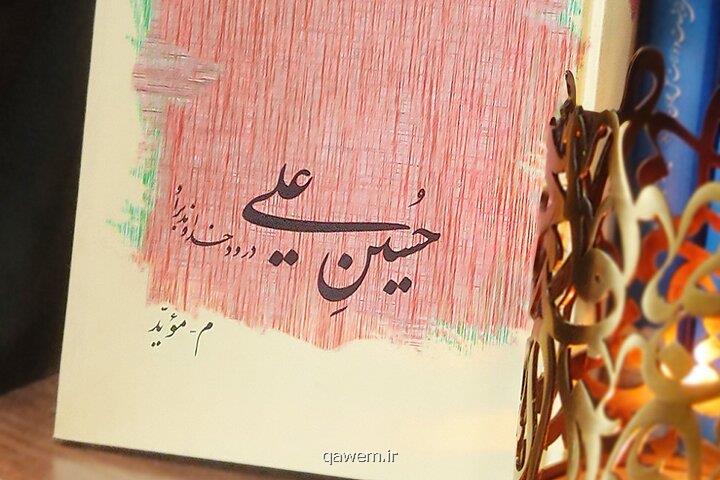 حُسینِ علی
درود خداوند بر اُ
م- مؤیّد
qawem.ir